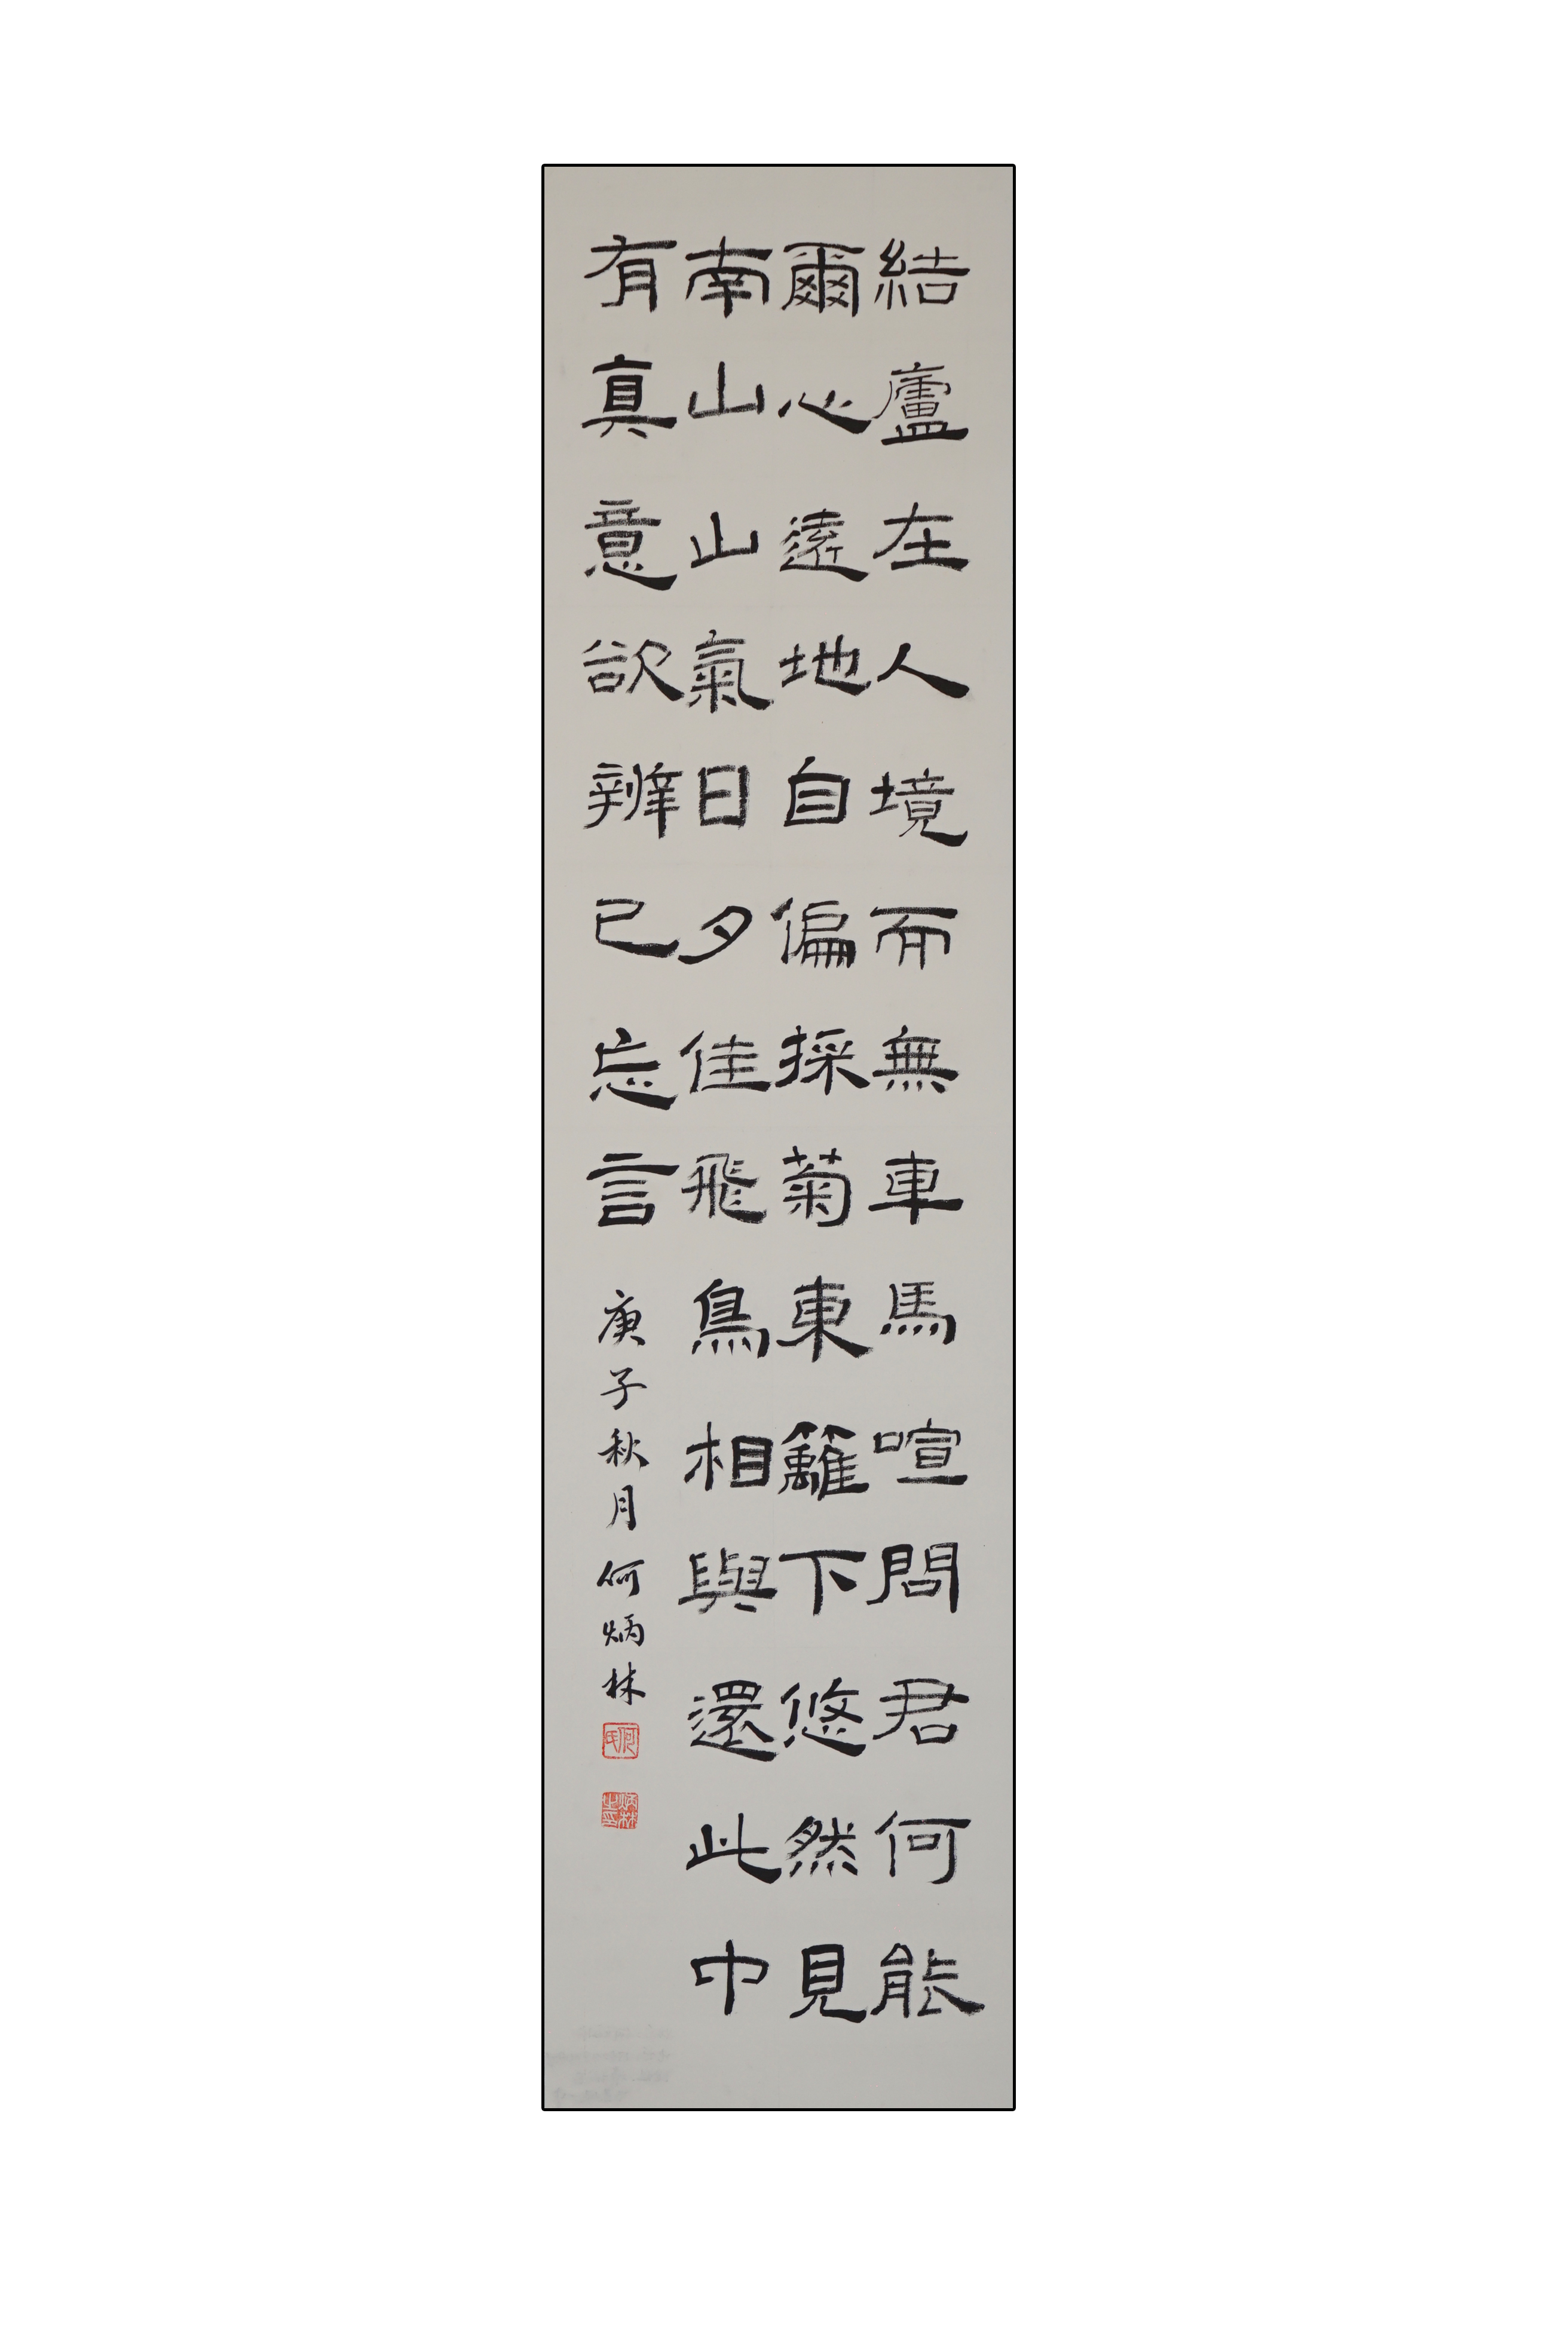 結廬在人境而無車馬喧問君何能
爾心遠地自偏採菊東籬下悠然見
南山山氣日夕佳飛鳥相與還此中
有真意欲辨已忘言
庚子秋月何炳林
何氏
炳林之印